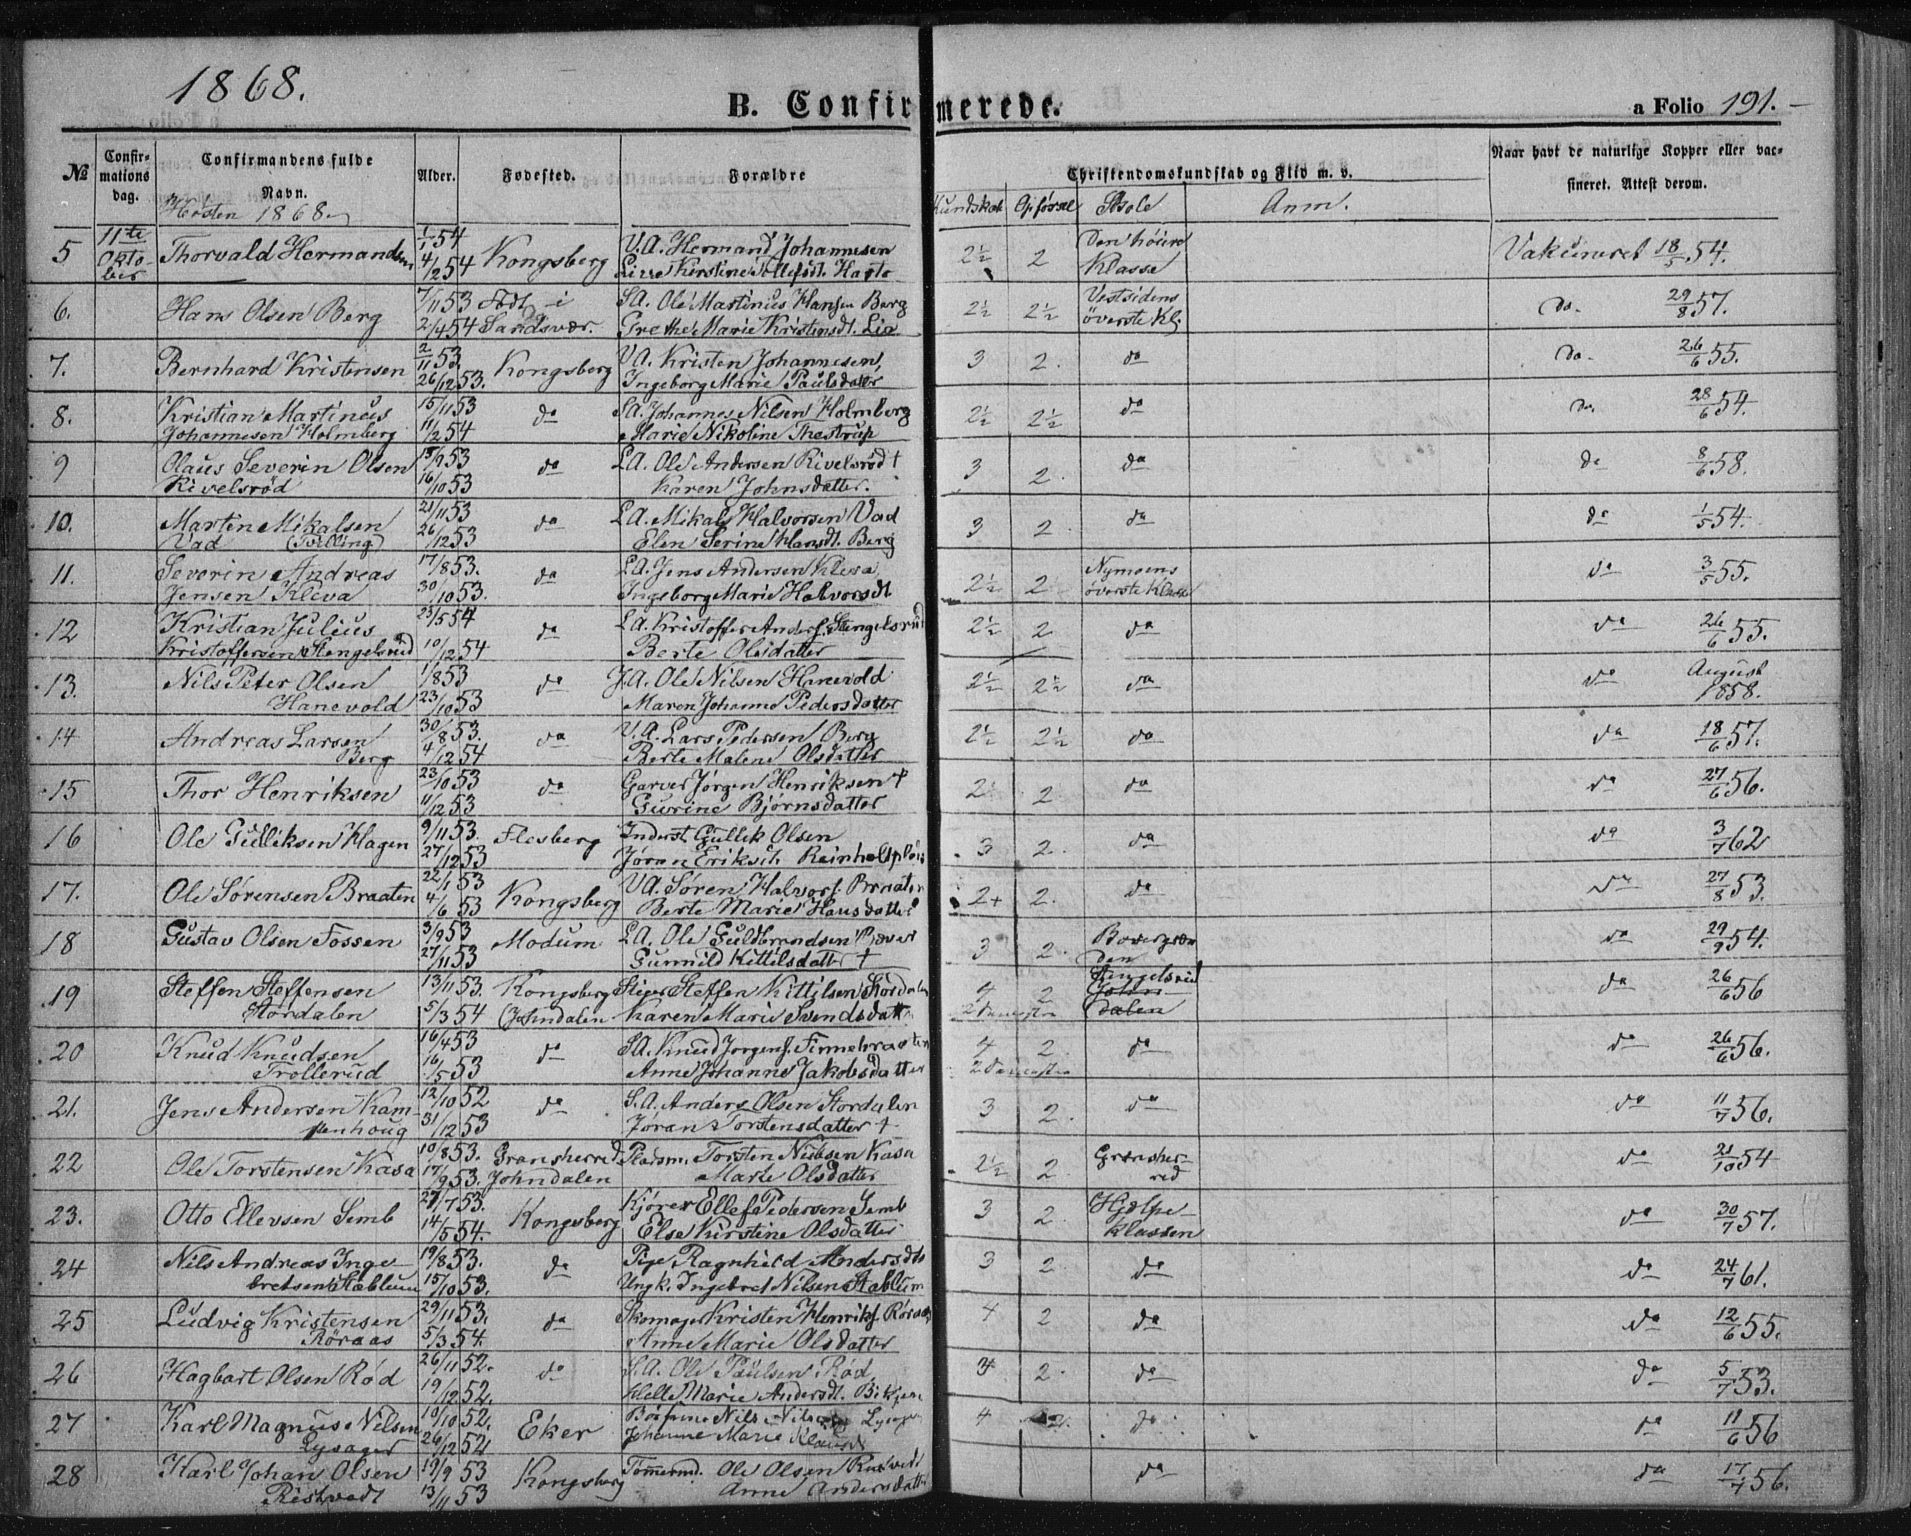 1868.
B. Confirmerede.
a Folio 191.
№
Confir-
mations
dag.
Confirmandens fulde
Navn.
Alder.
Fødested.
Forældre
Christendomskundskab og Flid m. v.
Naar havt de naturlige Kopper eller vac-
sineret. Attest derom.
Høsten 1868.
Kundskab Opførsel Skole Anm.
5 11te Okto- ber Thorvald Hermandsen 1/1 54 4/2 54 Kongsberg V.A. Hermand Johannesen 2½ 2 Den høiere Klasse Vakcineret 18/5 54.
6. Hans Olsen Berg 7/11 53 2/4 54 Født i Sandsvær. SA. Ole Martinus Hansen Berg
Grethe Marie Kristensdt. Lia 2½ 2½ Vestsidens øverste Kl. do. 29/8 57.
7. Bernhard Kristensen 2/11 53. 26/12 53. Kongsberg V.A. Kristen Johannesen,
Ingeborg Marie Paulsdatter 3 2. do do. 26/6 55.
8. Kristian Martinus
Johannesen Holmberg 15/11 53 11/2 54 do SA. Johannes Nilsen Holmberg
Marie Nikoline Thestrup 2½ 2½ do do. 28/6 54.
9 Olaus Severin Olsen
Rivelsrød 15/9 53 16/10 53 do LA. Ole Andersen Rivelsrød †
Karen Johnsdatter. 3 2. do do 8/6 58.
10. Martin Mikalsen
Vad (Tvilling) 21/11 53 26/12 53 do LA. Mikal Halvorsen Vad
Elen Serine Hansdt. Berg 3 2. do do 1/5 54.
11. Severin Andreas
Jensen Kleva 17/8 53. 30/10 53. do LA. Jens Andersen Kleva
Ingeborg Marie Halvorsdt 2½ 2 Nymoens øverste Klasse do 3/5 55.
12 Kristian Julius
Kristoffersen Stengelsrud 23/5 54 10/12 54 do LA. Kristoffer Anders. Stengelsrud
Berte Olsdatter 2½ 2 do do 26/6 55.
13. Nils Peter Olsen
Hanevold 1/8 53 23/10 53 do J.A. Ole Nilsen Hanevold
Maren Johanne Pedersdatter 2½ 2½ do do August 1858.
14 Andreas Larsen
Berg 30/8 53. 4/12 54 do V.A. Lars Pedersen Berg
Berte Malene Olsdatter 2½ 2½ do do 18/6 57.
15 Thor Henriksen 23/10 53 11/12 53 do Garver Jørgen Henriksen †
Gurine Bjørnsdatter 2 2 do do 27/6 56.
16 Ole Gulliksen Hagen 9/11 53. 27/12 53 Flesberg Inderst Gullik Olsen
Jøran Eriksdt. 3 2. do do 3/7 62
17. Ole Sørensen Braaten 22/1 53 4/6 53 Kongsberg V.A. Søren Halvors. Braaten
Berte Marie Hansdatter 2+ 2. do do 27/8 53.
18 Gustav Olsen Fossen 3/9 53 27/11 53 Modum LA. Ole Guldbrandsen
Gunnild Kittilsdatter † 3 2. do 29/9 54.
19 Steffen Steffensen
Stordalen 13/11 53. 5/3 54 Kongsberg (Johndalen Stiger Steffen Kittilsen Stordalen
Karen Marie Svendsdatt 4 2 Stengelsrud John- dalen do 26/6 56
20 Knud Knudsen
Trollerud 16/4 53 16/5 53 do SA. Knud Jørgens. Finnebraaten
Anne Johanne Jakobsdatter 4 2. do do 26/6 56.
21. Jens Andersen Kam-
penhoug 12/10 52 31/12 53 do S.A. Anders Olsen Stordalen
Jøran Torstensdatter † 3 2. do do 11/7 56.
22 Ole Torstensen Kasa 10/8 53. 17/9 53. Gransherred Johndalen Pladsm. Torsten Nubsen Kasa
Marte Olsdatter 2½ 2 Gransher- red do 21/10 54
23. Otto Ellevsen Semb 27/7 53. 14/5 54. Kongsberg Kjører Ellef Pedersen Semb
Else Kirstine Olsdatter 3 2. Hjælpe- klassen do 30/7 57.
24 Nils Andreas Inge-
bretsen Stablum 19/8 53. 15/10 53. do Pige Ragnhild Andersdtr
Ungk. Ingebret Nilsen Stablum 3 2. do do 24/7 61.
25 Ludvig Kristensen
Røraas 29/11 53. 5/3 54. do Skomager Kristen Henriks. Røraas
Anne Marie Olsdatter 4 2 do do 12/6 55.
26 Hagbart Olsen Rød 26/11 52. 19/12 52. do S.A. Ole Paulsen Rød,
Helle Marie Andersdt. 4 2. do do 5/7 53.
27 Karl Magnus Nilsen
Lysager 19/10 52. 26/12 52 Eker Nils Nilsen
Johanne Marie 4 2. do do 11/6 56
28 Karl Johan Olsen
Ristvedt 19/9 53 13/11 53 Kongsberg Tømmermd. Ole Olsen
Anne Andersdatter do do 17/7 56.